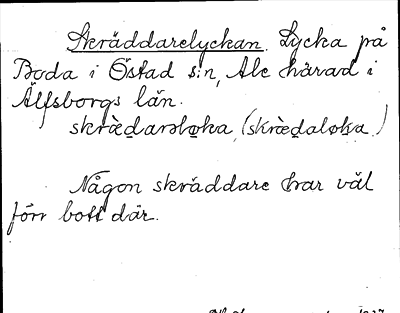 Skräddarelyckan. Lycka på
Boda i Östad s:n, Ale härad i
Älfsborgs län.
skrædarəløka, (skrædaløka)
Någon skräddare har väl
förr bott där.